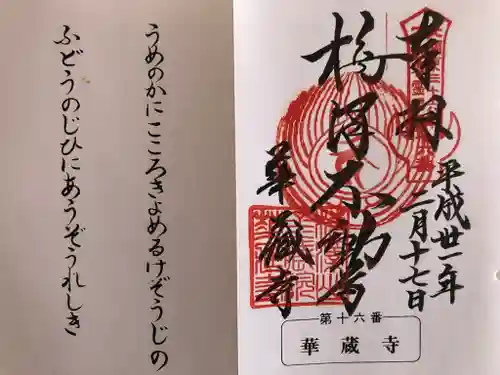 奉拝
平成廿一年
一月十七日
梅浄不動尊
華蔵寺
第十六番
華蔵寺
うめのかにこころきよめるけぞうじの
ふどうのじひにあうぞうれしき